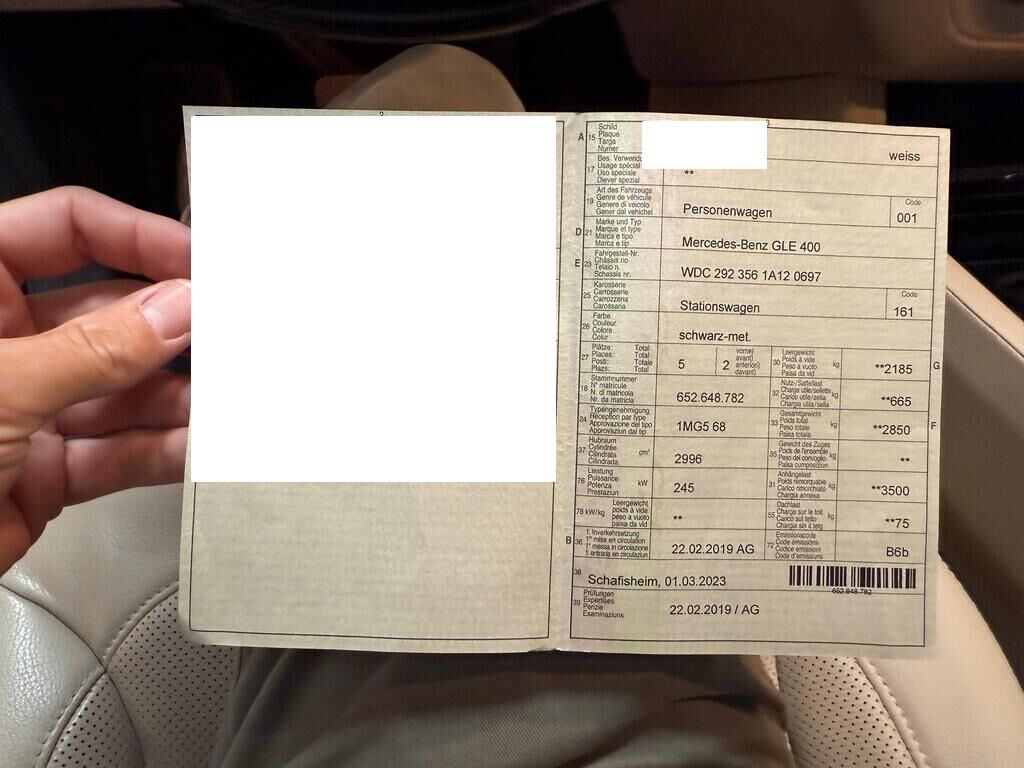 2
3
A 15 Schild
Plaque
Targa
Numer
weiss
17 Bes. Verwend
Usage spécial
Uso speciale
Diever spezial
**
19 Art des Fahrzeugs
Genre de véhicule
Genere di veicolo
Gener dal vehichel
Personenwagen
Code
001
D 21 Marke und Typ
Marque et type
Marca e tipo
Marca e tip
Mercedes-Benz GLE 400
E 23 Fahrgestell-Nr.
Châssis no
Telaio n.
Schassis nr.
WDC 292 356 1A12 0697
25 Karosserie
Carrosserie
Carrozzeria
Carossaria
Stationswagen
Code
161
26 Farbe
Couleur
Colore
Colur
schwarz-met.
27 Plätze: Total
Places: Total
Posti: Totale
Plazs: Total
5
2
vorne)
avant)
anteriori)
davant)
30 Leergewicht
Poids à vide
Peso a vuoto
Paisa da vid
kg
**2185
G
18 Stammnummer
N° matricule
N. di matricola
Nr. da matricla
652.648.782
32 Nutz-/Sattellast
Charge utile/sellette
Carico utile/sella
Chargia utila/sella
kg
**665
24 Typengenehmigung
Réception par type
Approvazione del tipo
Approvaziun dal tip
1MG5 68
33 Gesamtgewicht
Poids total
Peso totale
Paisa totala
kg
**2850
F
37 Hubraum
Cylindrée
Cilindrata
Cilindrada
cm³
2996
35 Gewicht des Zuges
Poids de l'ensemble
Peso del convoglio
Paisa cumposiziun
kg
**
76 Leistung
Puissance
Potenza
Prestaziun
kW
245
31 Anhängelast
Poids remorquable
Carico rimorchiato
Chargia annexa
kg
**3500
78 kW/kg
Leergewicht
poids à vide
peso a vuoto
paisa da vid
**
55 Dachlast
Charge sur le toit
Carico sul tetto
Chargia sin il tetg
kg
**75
B 36 1. Inverkehrsetzung
1re mise en circulation
1a messa in circolazione
1. entrada en circulaziun
22.02.2019 AG
72 Emissionscode
Code émissions
Codice emissioni
Code d'emissiuns
B6b
38 Schafisheim, 01.03.2023
652.648.782
39 Prüfungen
Expertises
Perizie
Examinaziuns
22.02.2019 / AG